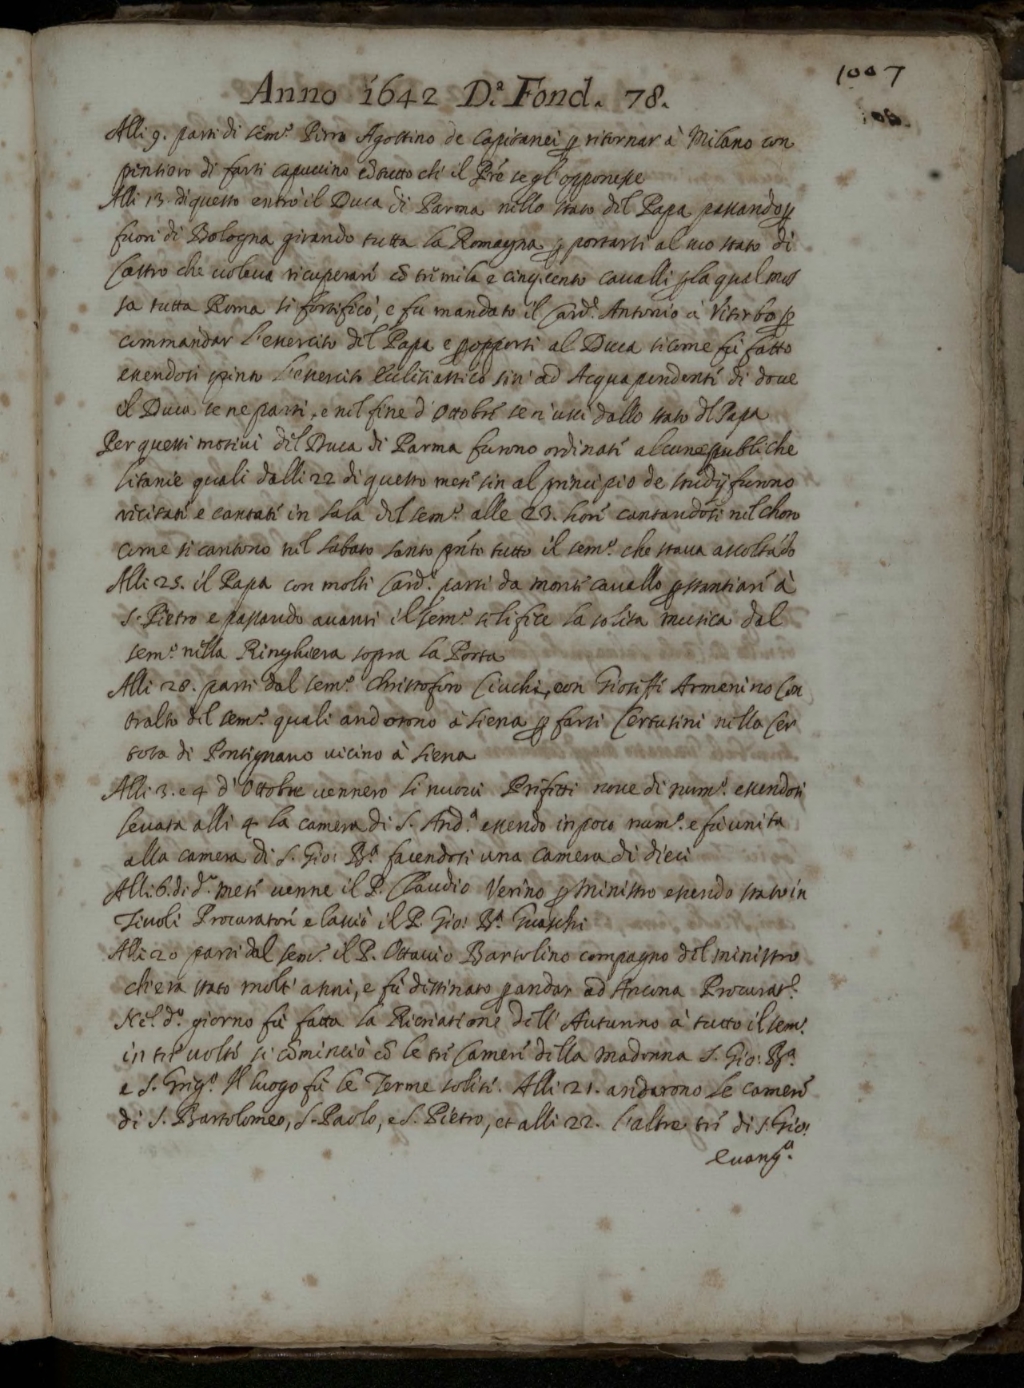 1007
Anno 1642 D.ª Fond. 78.
Alli 9. parti di sem.º Pirro Agostino de Capitanei p ritornar à Milano con
pensiero di farsi capuccino ed tutto ch'il Pre se gl'opponesse
Alli 13 di questo entrò il Duca di Parma nello stato del Papa passando p
fuori di Bologna girando tutta la Romagna p portarsi al suo stato di
Castro che voleva ricuperare cō tremila e cinqcento cavalli p la qual mos
sa tutta Roma si fortificò, e fu mandato il Card. Antonio à Viterbo p
commandar l'essercito del Papa e p opporsi al Duca sicome fù fatto
essendosi spinto l'essercito Eclesiastico sin'ad Acquapendente di dove
il Duca se ne partì, e nel fine d'Ottobre se n'uscì dallo stato dl Papa
Per questi motivi del Duca di Parma furono ordinate alcune publiche
litanie quali dalli 22 di questo mese sin al principio de studij furono
recitate e cantate in sala del sem.º alle 23. hore cantandosi nel choro
come si cantono nel sabato santo pnte tutto il sem.º che stava ascoltādo
Alli 25. il Papa con molti Card. partì da monte cavallo p stantiare à
S. Pietro e passando avanti il sem.º se li fece la solita musica dal
sem.º nella Ringhiera sopra la Porta
Alli 28. parti dal sem.º Christoforo Ciuchi, con Gioseffe Armenino Con
tralto del sem.º quali andorono à Siena p farsi Certusini nella Cer
tosa di Pontignano vicino à Siena
Alli 3. e 4 d'Ottobre vennero li nuovi Prefetti nove di num.º essendosi
levata alli 4 la camera di S. And.ª essendo in poco num.º e fù unita
alla camera di S. Gio: B.ª facendosi una camera di dieci
Alli 6. di d.º mese venne il P. Claudio Verino p Ministro essendo stato in
Tivoli Procuratore e lasciò il P. Gio: B.ª Guaschi
Alli 20 parti dal sem.º il P. Ottavio Bartolino compagno del ministro
ch'era stato molti anni, e fù destinato p andar ad Ancona Procurat.e
Nel d.º giorno fù fatta la Ricriatione dell'Autunno à tutto il sem.º
in tre volte si cōminciò cō le tre Camere della Madonna S. Gio: B.ª
e S. Grig.º Il luogo fù le Terme solite. Alli 21. andarono le camere
di S. Bartolomeo, S. Paolo, e S. Pietro, et alli 22. l'altre tre di S. Gio:
Evang.ª